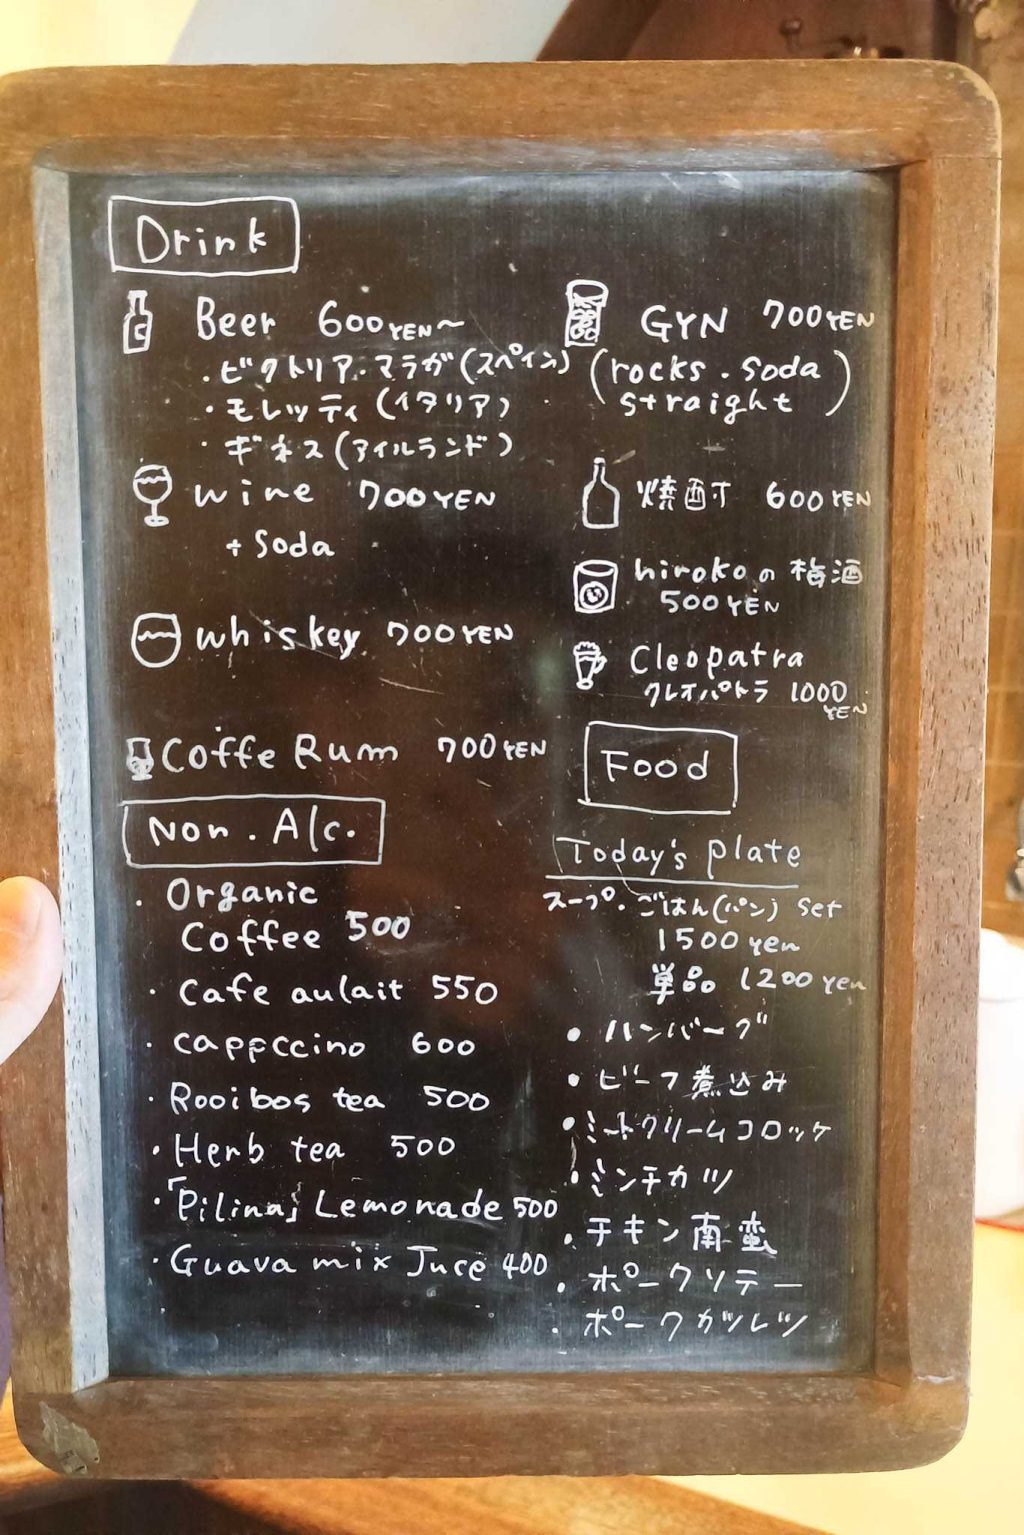 Drink
Beer 600YEN〜
・ビクトリア・マラガ(スペイン)
・モレッティ(イタリア)
・ギネス(アイルランド)
wine 700YEN
+ Soda
whiskey 700YEN
Coffe Rum 700YEN
GYN 700YEN
(rocks・soda
straight)
焼酎 600YEN
hirokoの梅酒
500YEN
Cleopatra
クレオパトラ 1000
YEN
Non.Alc.
・Organic
Coffee 500
・Cafe aulait 550
・cappccino 600
・Rooibos tea 500
・Herb tea 500
・「Pilina」Lemonade 500
・Guava mix Juce 400
Food
Today's plate
スープ・ごはん(パン) set
1500 yen
単品 1200 yen
・ハンバーグ
・ビーフ煮込み
・ミートクリームコロッケ
・ミンチカツ
・チキン南蛮
・ポークソテー
・ポークカツレツ